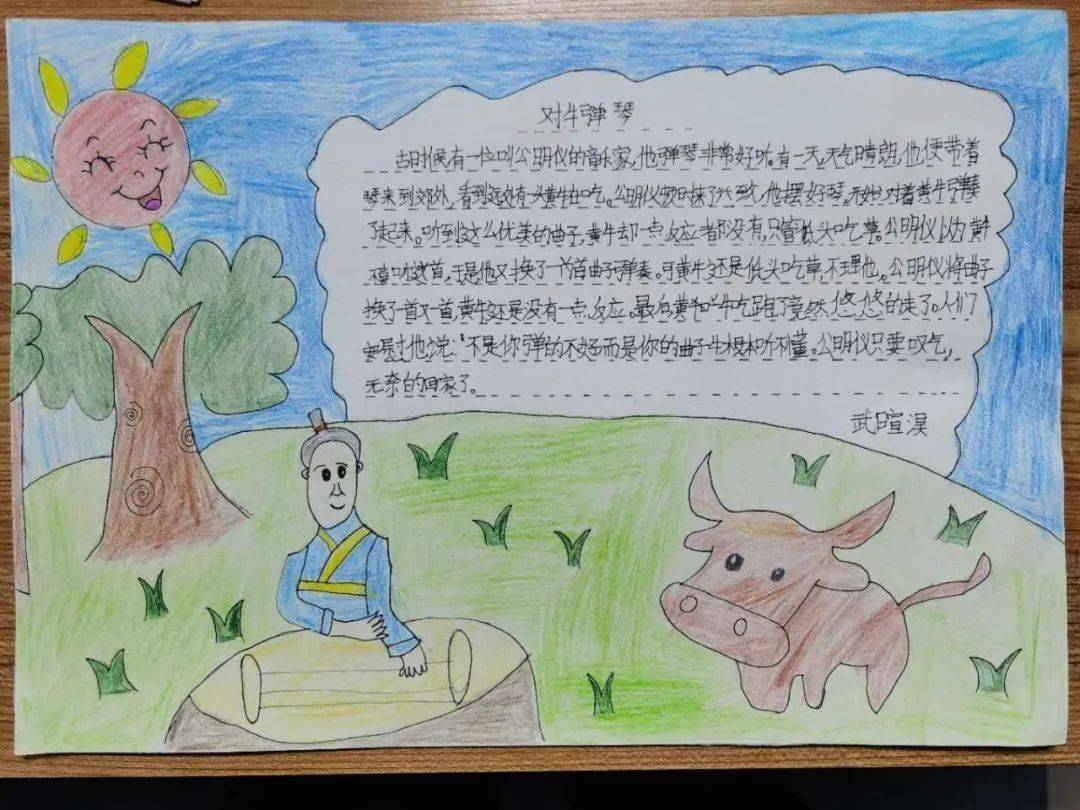 对牛弹琴
古时候有一位叫公明仪的音乐家,他弹琴非常好听。有一天,天气晴朗,他便带着
琴来到郊外,看到远处有头黄牛在吃。公明仪顿时来了兴致,他摆好琴,开始对着黄牛弹
了起来。听到这么优美的曲子,黄牛却一点反应都没有,只管低头吃草。公明仪以为黄牛
不喜欢这首,于是他又换了一首曲子弹奏。可黄牛还是低头吃草,不理他。公明仪将曲子
换了一首又一首,黄牛还是没有一点反应。最后黄牛吃饱了竟然悠悠的走了。人们
安慰他说:"不是你弹的不好而是你的曲子牛根本听不懂。公明仪只要叹气,
无奈的回家了。
武暄淏